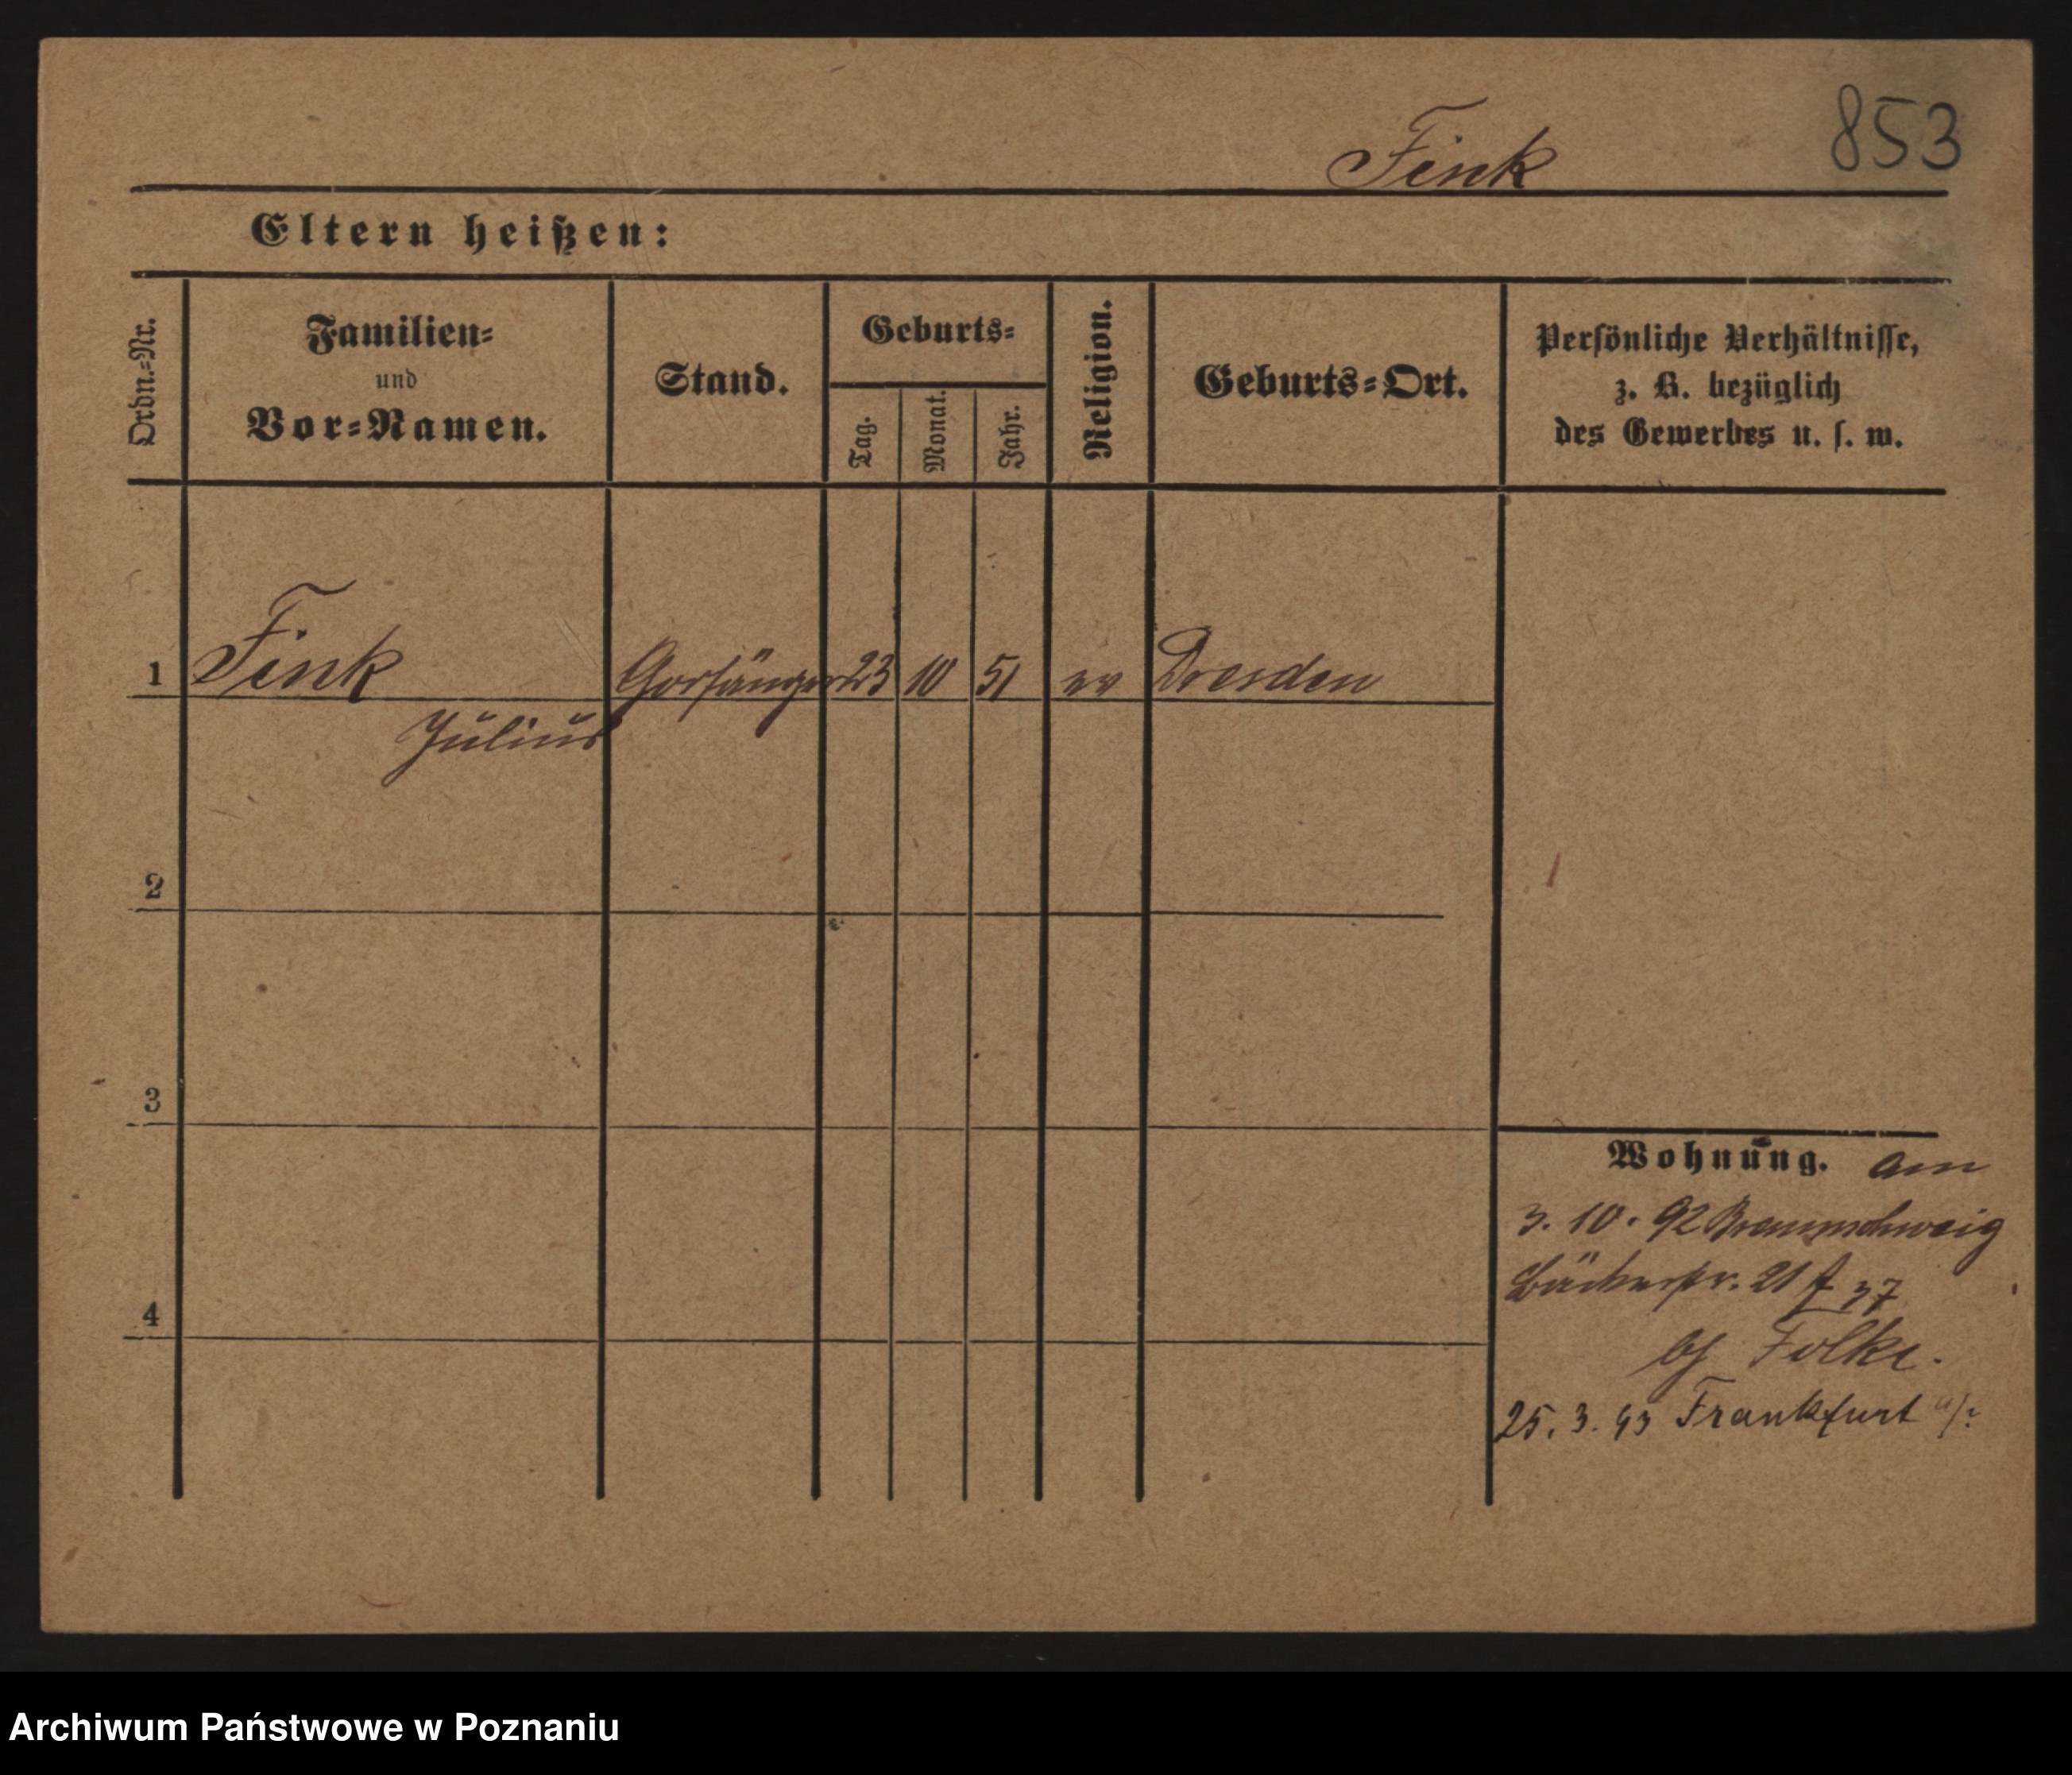 853
Fink
Eltern heißen:
Ordn.-Nr.
Familien-
und
Vor-Namen.
Stand.
Geburts-
Tag.
Monat.
Jahr.
Religion.
Geburts-Ort.
Persönliche Verhältnisse,
z. B. bezüglich
des Gewerbes u. s. w.
1 Fink 23 10 51 ev Dresden
Julius
2
3
4
Wohnung. am
3. 10. 92 Braunschweig
Bäckerstr. 21 37
Folke.
25. 3. 93 Frankfurt
Archiwum Państwowe w Poznaniu